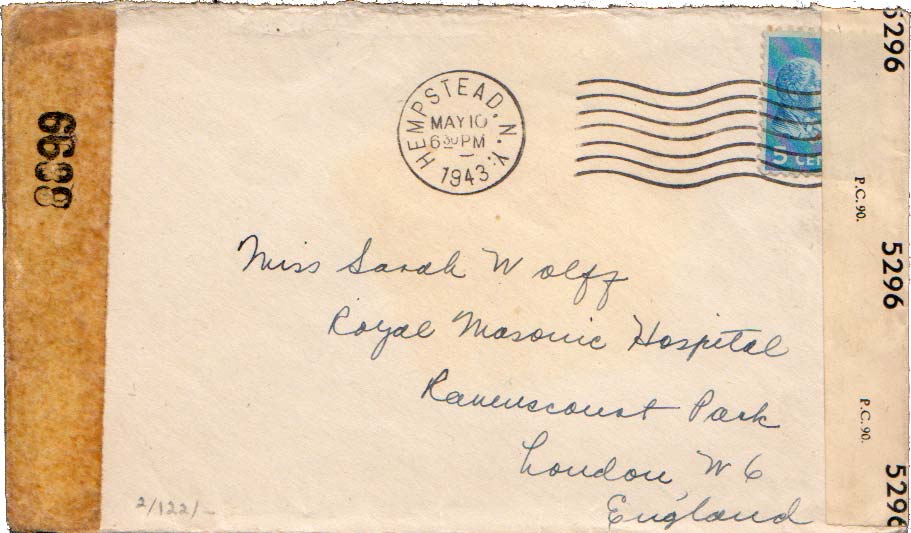 8899
HEMPSTEAD, N.Y.
MAY 10
6 30 PM
1943
5 CEN
5296
P.C. 90.
5296
P.C. 90.
5296
Miss Sarah Wolff
Royal Masonic Hospital
Ravenscourt Park
London, W 6
England
2/122/-